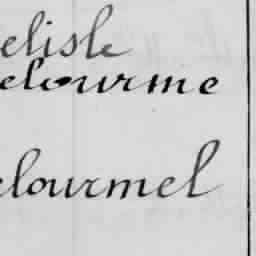 elisle
elourme
elourmel